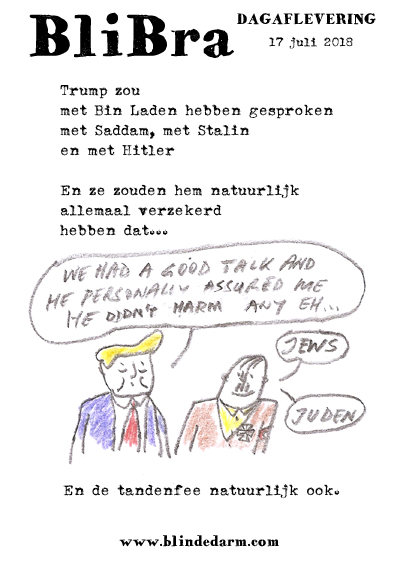 BliBra
DAGAFLEVERING
17 juli 2018
Trump zou
met Bin Laden hebben gesproken
met Saddam, met Stalin
en met Hitler
En ze zouden hem natuurlijk
allemaal verzekerd
hebben dat...
WE HAD A GOOD TALK AND
HE PERSONALLY ASSURED ME
HE DIDN'T HARM ANY EH...
JEWS
JUDEN
En de tandenfee natuurlijk ook.
www.blindedarm.com